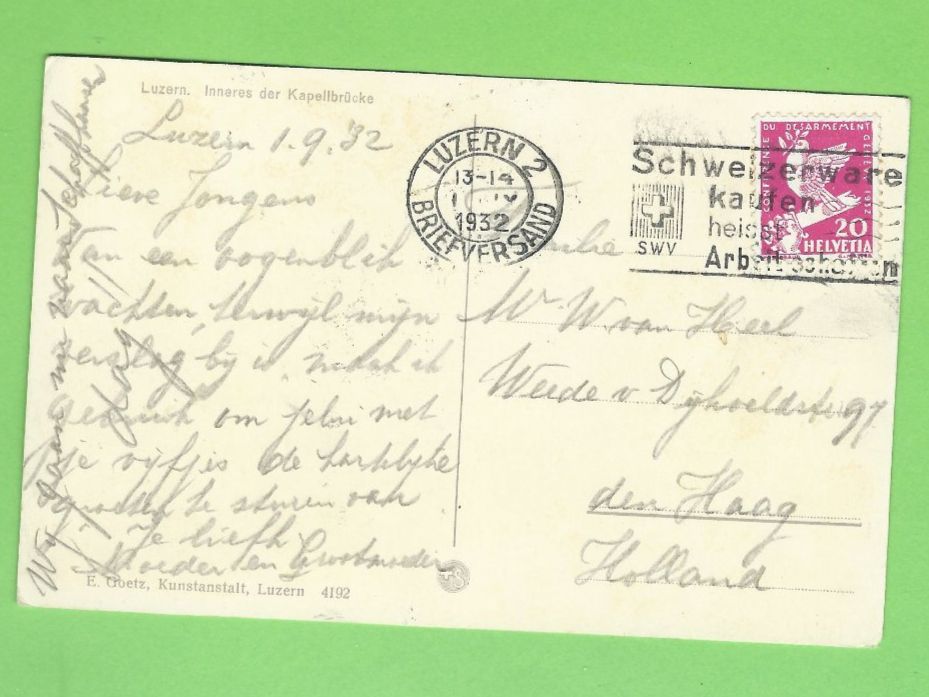 Luzern. Inneres der Kapellbrücke
Luzern 1.9.'32
Lieve Jongens
Van een oogenblik
wachten, terwijl mijn
verslag bij is, maak ik
gebruik om jelui met
je vijfjes de hartelijke
groeten te sturen van
Je liefh
Moeder en Grootmoeder
Wij gaan nu naar Schaffhausen
dag
E. Goetz, Kunstanstalt, Luzern 4192
LUZERN 2
13-14
1932
BRIEFVERSAND
Schweizerware
kaufen
heisst
Arbeit schaffen
SWV
CONFERENCE DU DESARMEMENT GENEVE 1932
20
HELVETIA
W van Heel
Weede v Dijkveldstr 97
den Haag
Holland